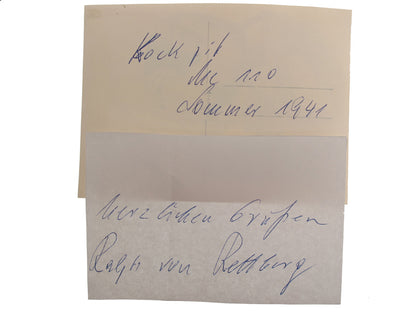 Kock pit
Me 110
Sommer 1941
herzlichen Grüßen
Ralph von Rettberg